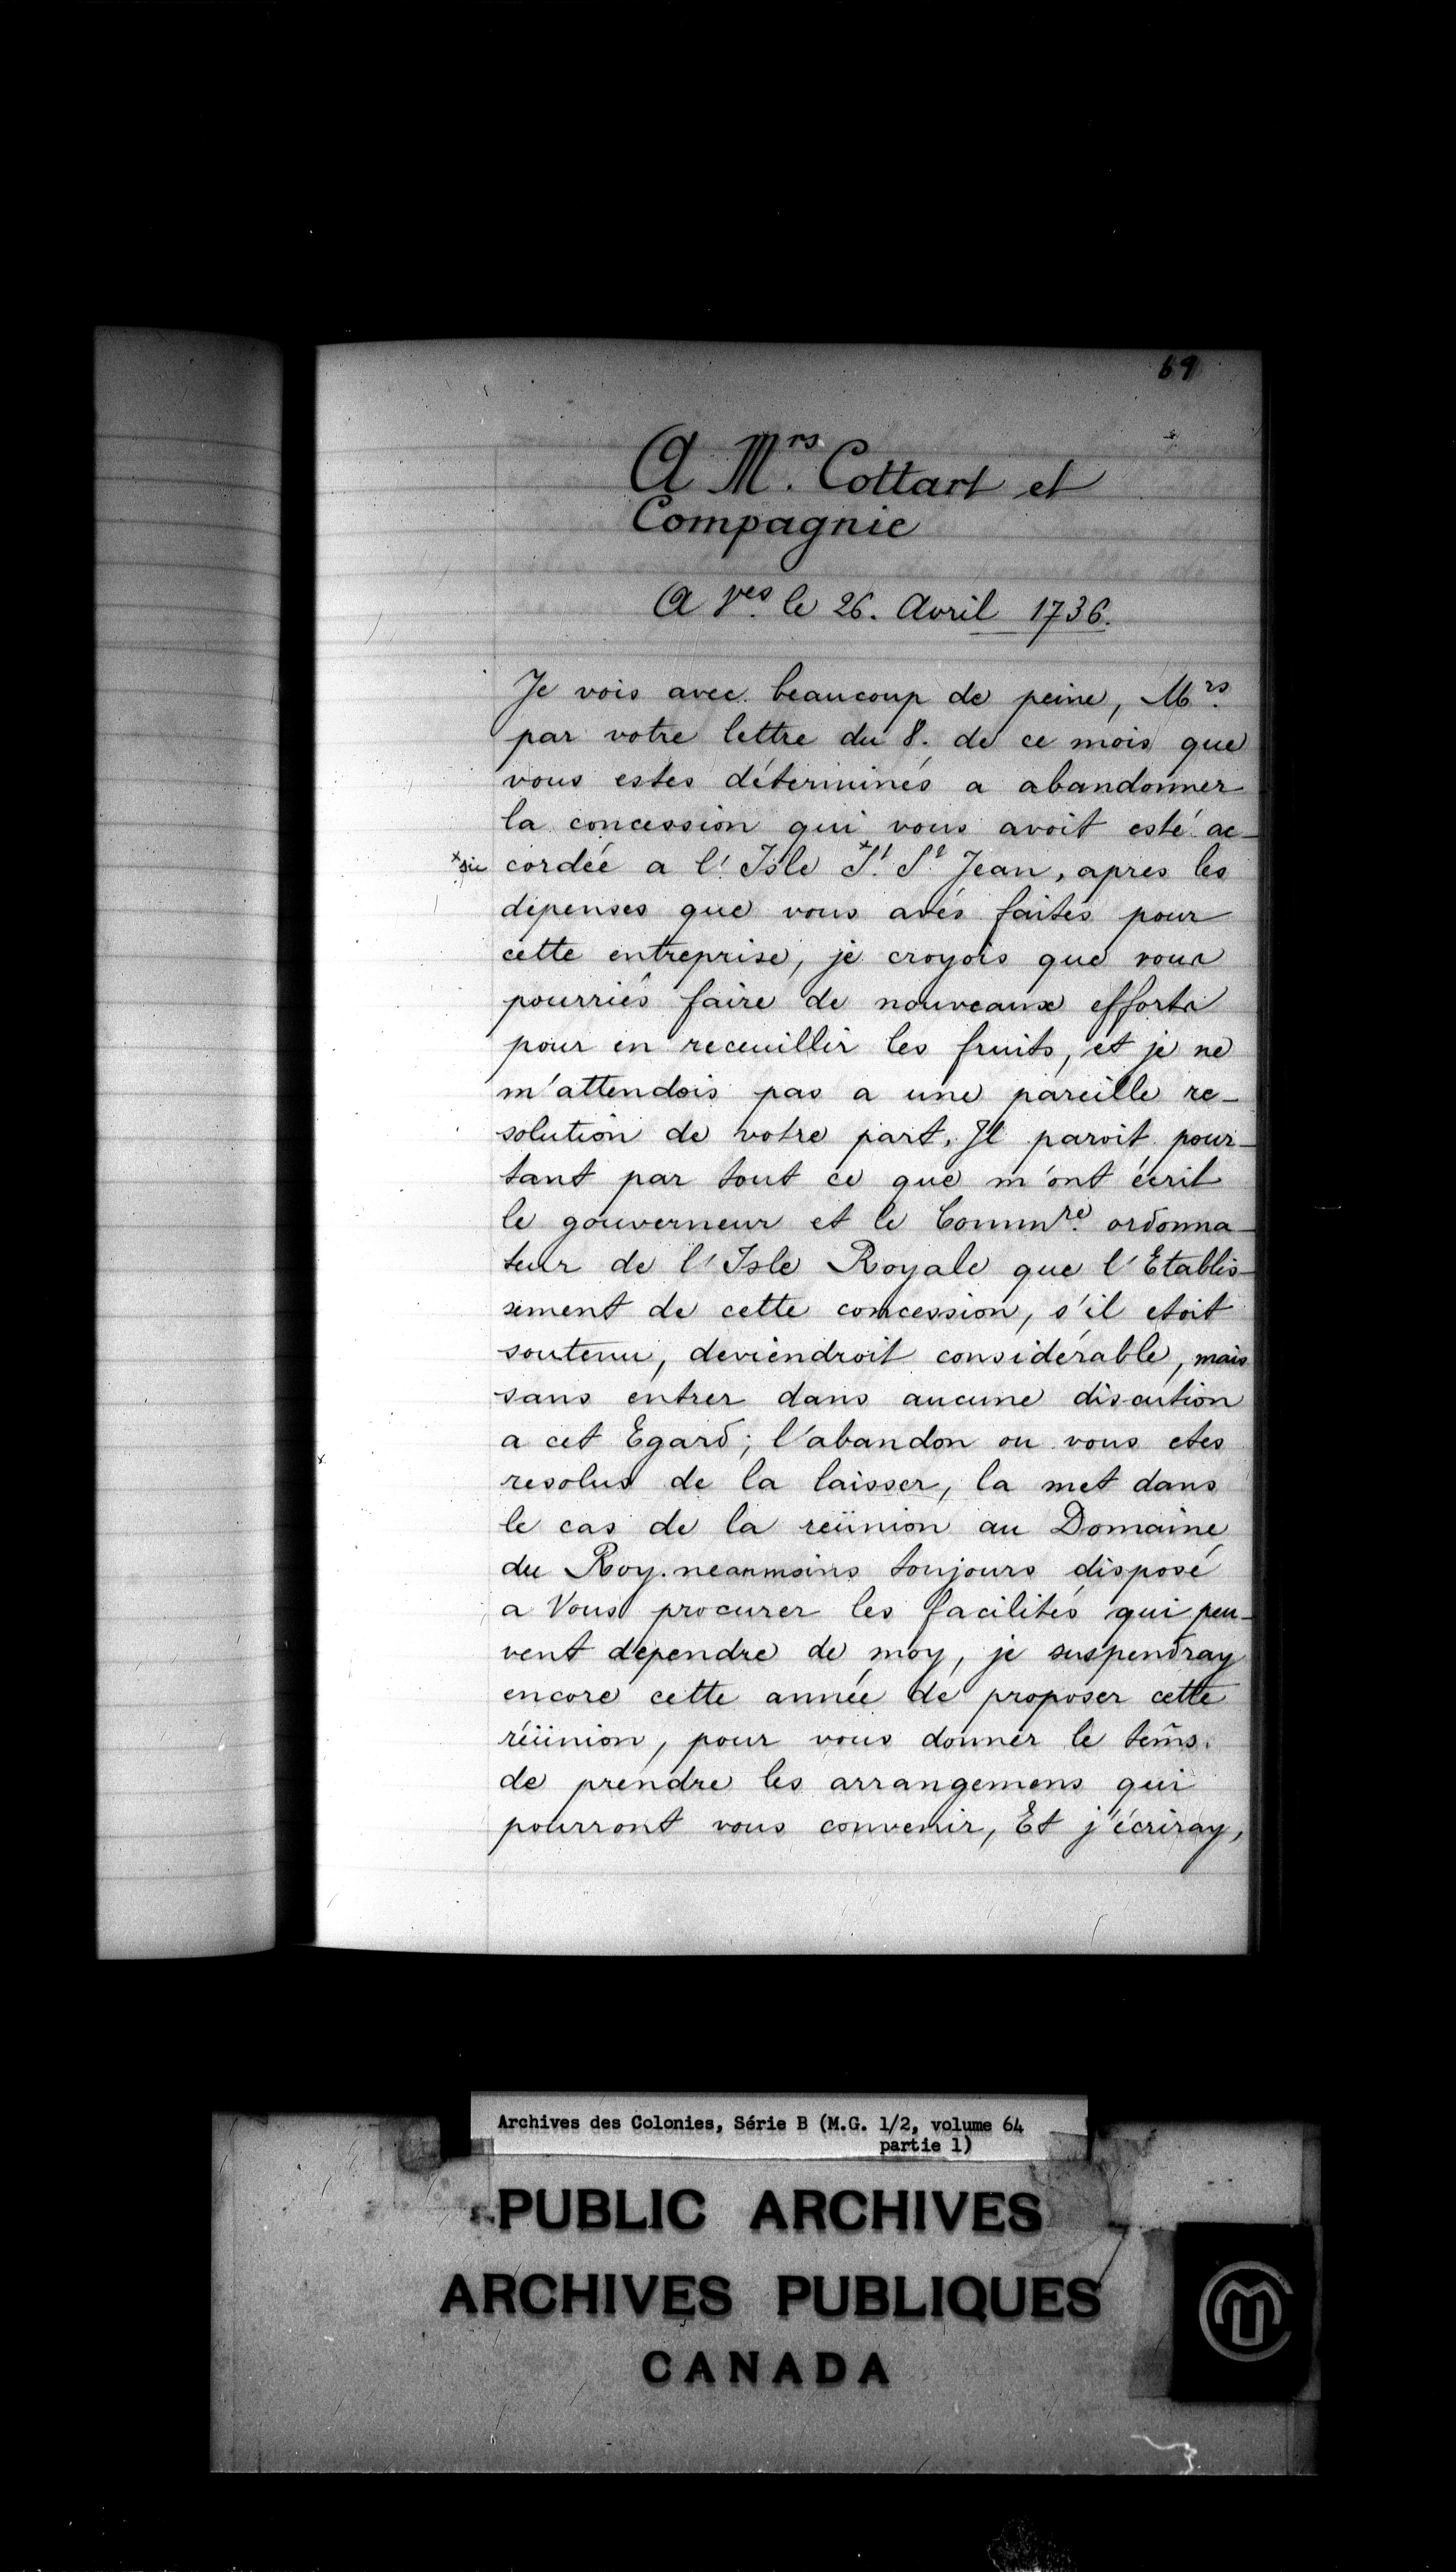 69
A Mrs. Cottart et
Compagnie
A Ves. le 26. Avril 1736.
Je vois avec beaucoup de peine, Mrs.
par votre lettre du 8. de ce mois que
vous estes déterminés a abandonner
la concession qui vous avoit esté ac-
*sic cordée a l'Isle *St. St. Jean, apres les
depenses que vous avés faites pour
cette entreprise, je croyois que vous
pourriés faire de nouveaux efforts
pour en receuillir les fruits, et je ne
m'attendois pas a une pareille re-
solution de votre part. Il paroit pour-
tant par tout ce que m'ont écrit
le gouverneur et le Commre. ordonna-
teur de l'Isle Royale que l'Etablis-
sement de cette concession, s'il etoit
soutenu, deviendroit considérable, mais
sans entrer dans aucune discution
a cet Egard; l'abandon ou vous etes
resolus de la laisser, la met dans
le cas de la reünion au Domaine
du Roy. neanmoins toujours disposé
a Vous procurer les facilités qui peu-
vent dependre de moy, je suspendray
encore cette année de proposer cette
réünion, pour vous donner le tem̃s.
de prendre les arrangemens qui
pourront vous convenir, Et j'écriray,
Archives des Colonies, Série B (M.G. 1/2, volume 64
partie 1)
PUBLIC ARCHIVES
ARCHIVES PUBLIQUES
CANADA